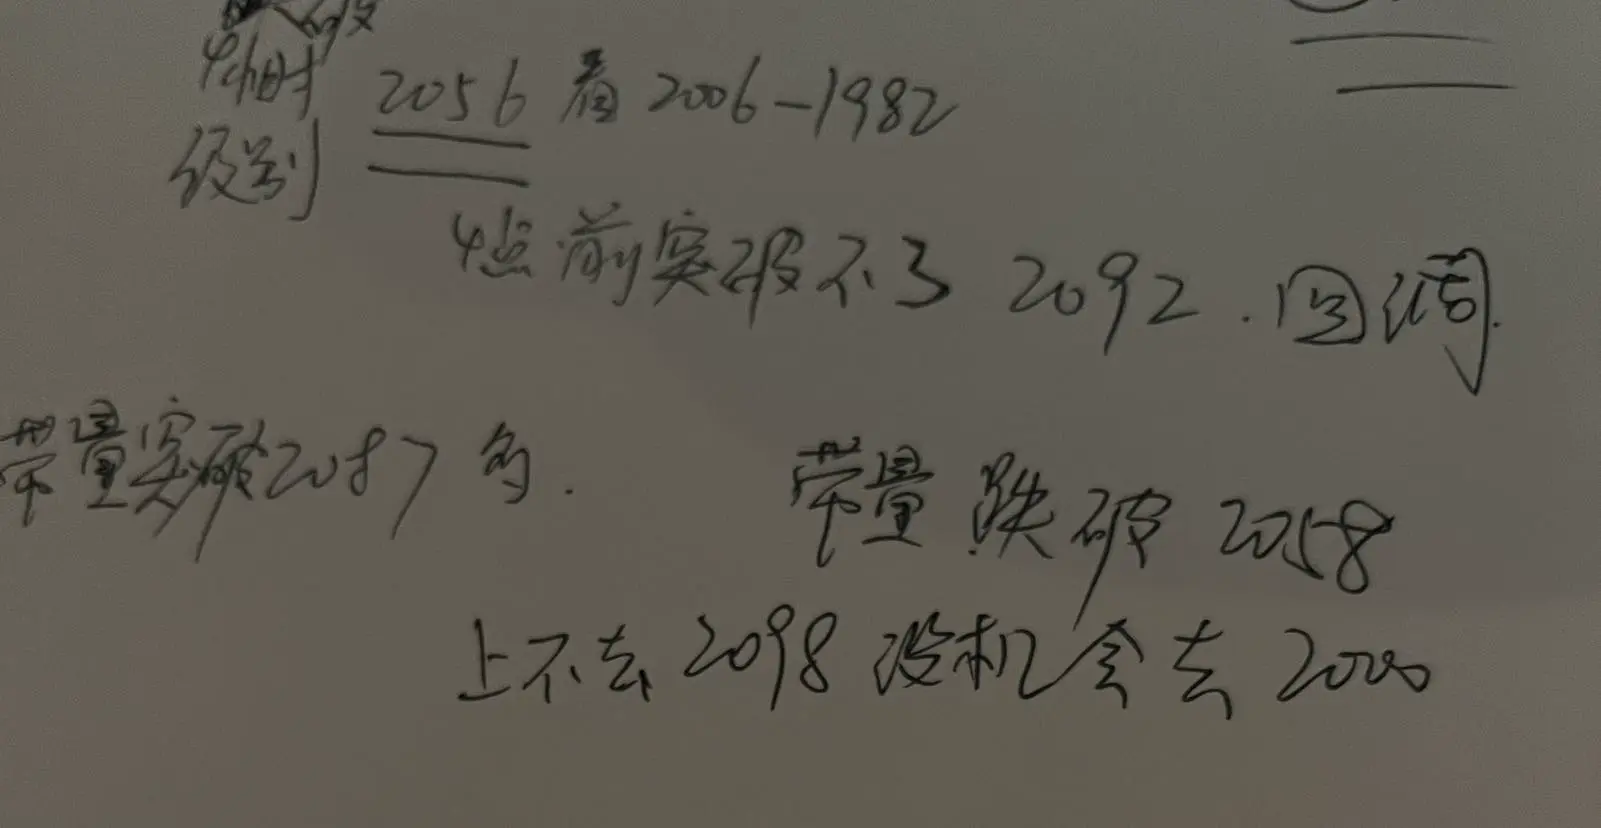 4小时
级别 2056 看 2006-1982
4点前突破不了 2092. 回调.
带量突破2087 多.
带量 跌破 2058
上不去 2098 没机会去 2000